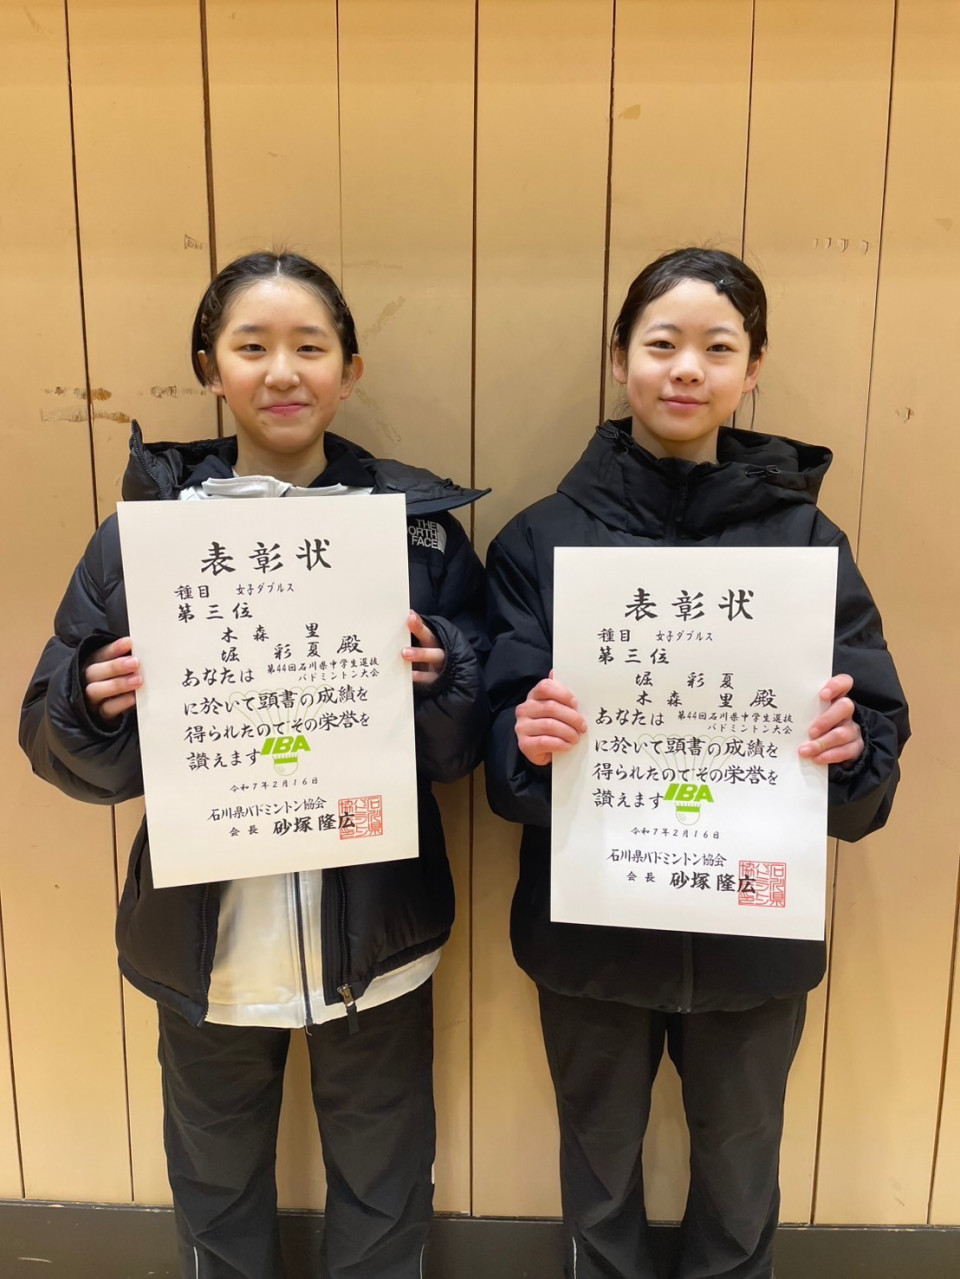 THE
NORTH
FACE
表彰状
種目 女子ダブルス
第三位
木森 里
堀 彩夏 殿
あなたは 第44回石川県中学生選抜
バドミントン大会
に於いて頭書の成績を
得られたのでその栄誉を
讃えます
IBA
令和7年2月16日
石川県バドミントン協会
会長 砂塚隆広
表彰状
種目 女子ダブルス
第三位
堀 彩夏
木森 里 殿
あなたは 第44回石川県中学生選抜
バドミントン大会
に於いて頭書の成績を
得られたのでその栄誉を
讃えます
IBA
令和7年2月16日
石川県バドミントン協会
会長 砂塚隆広